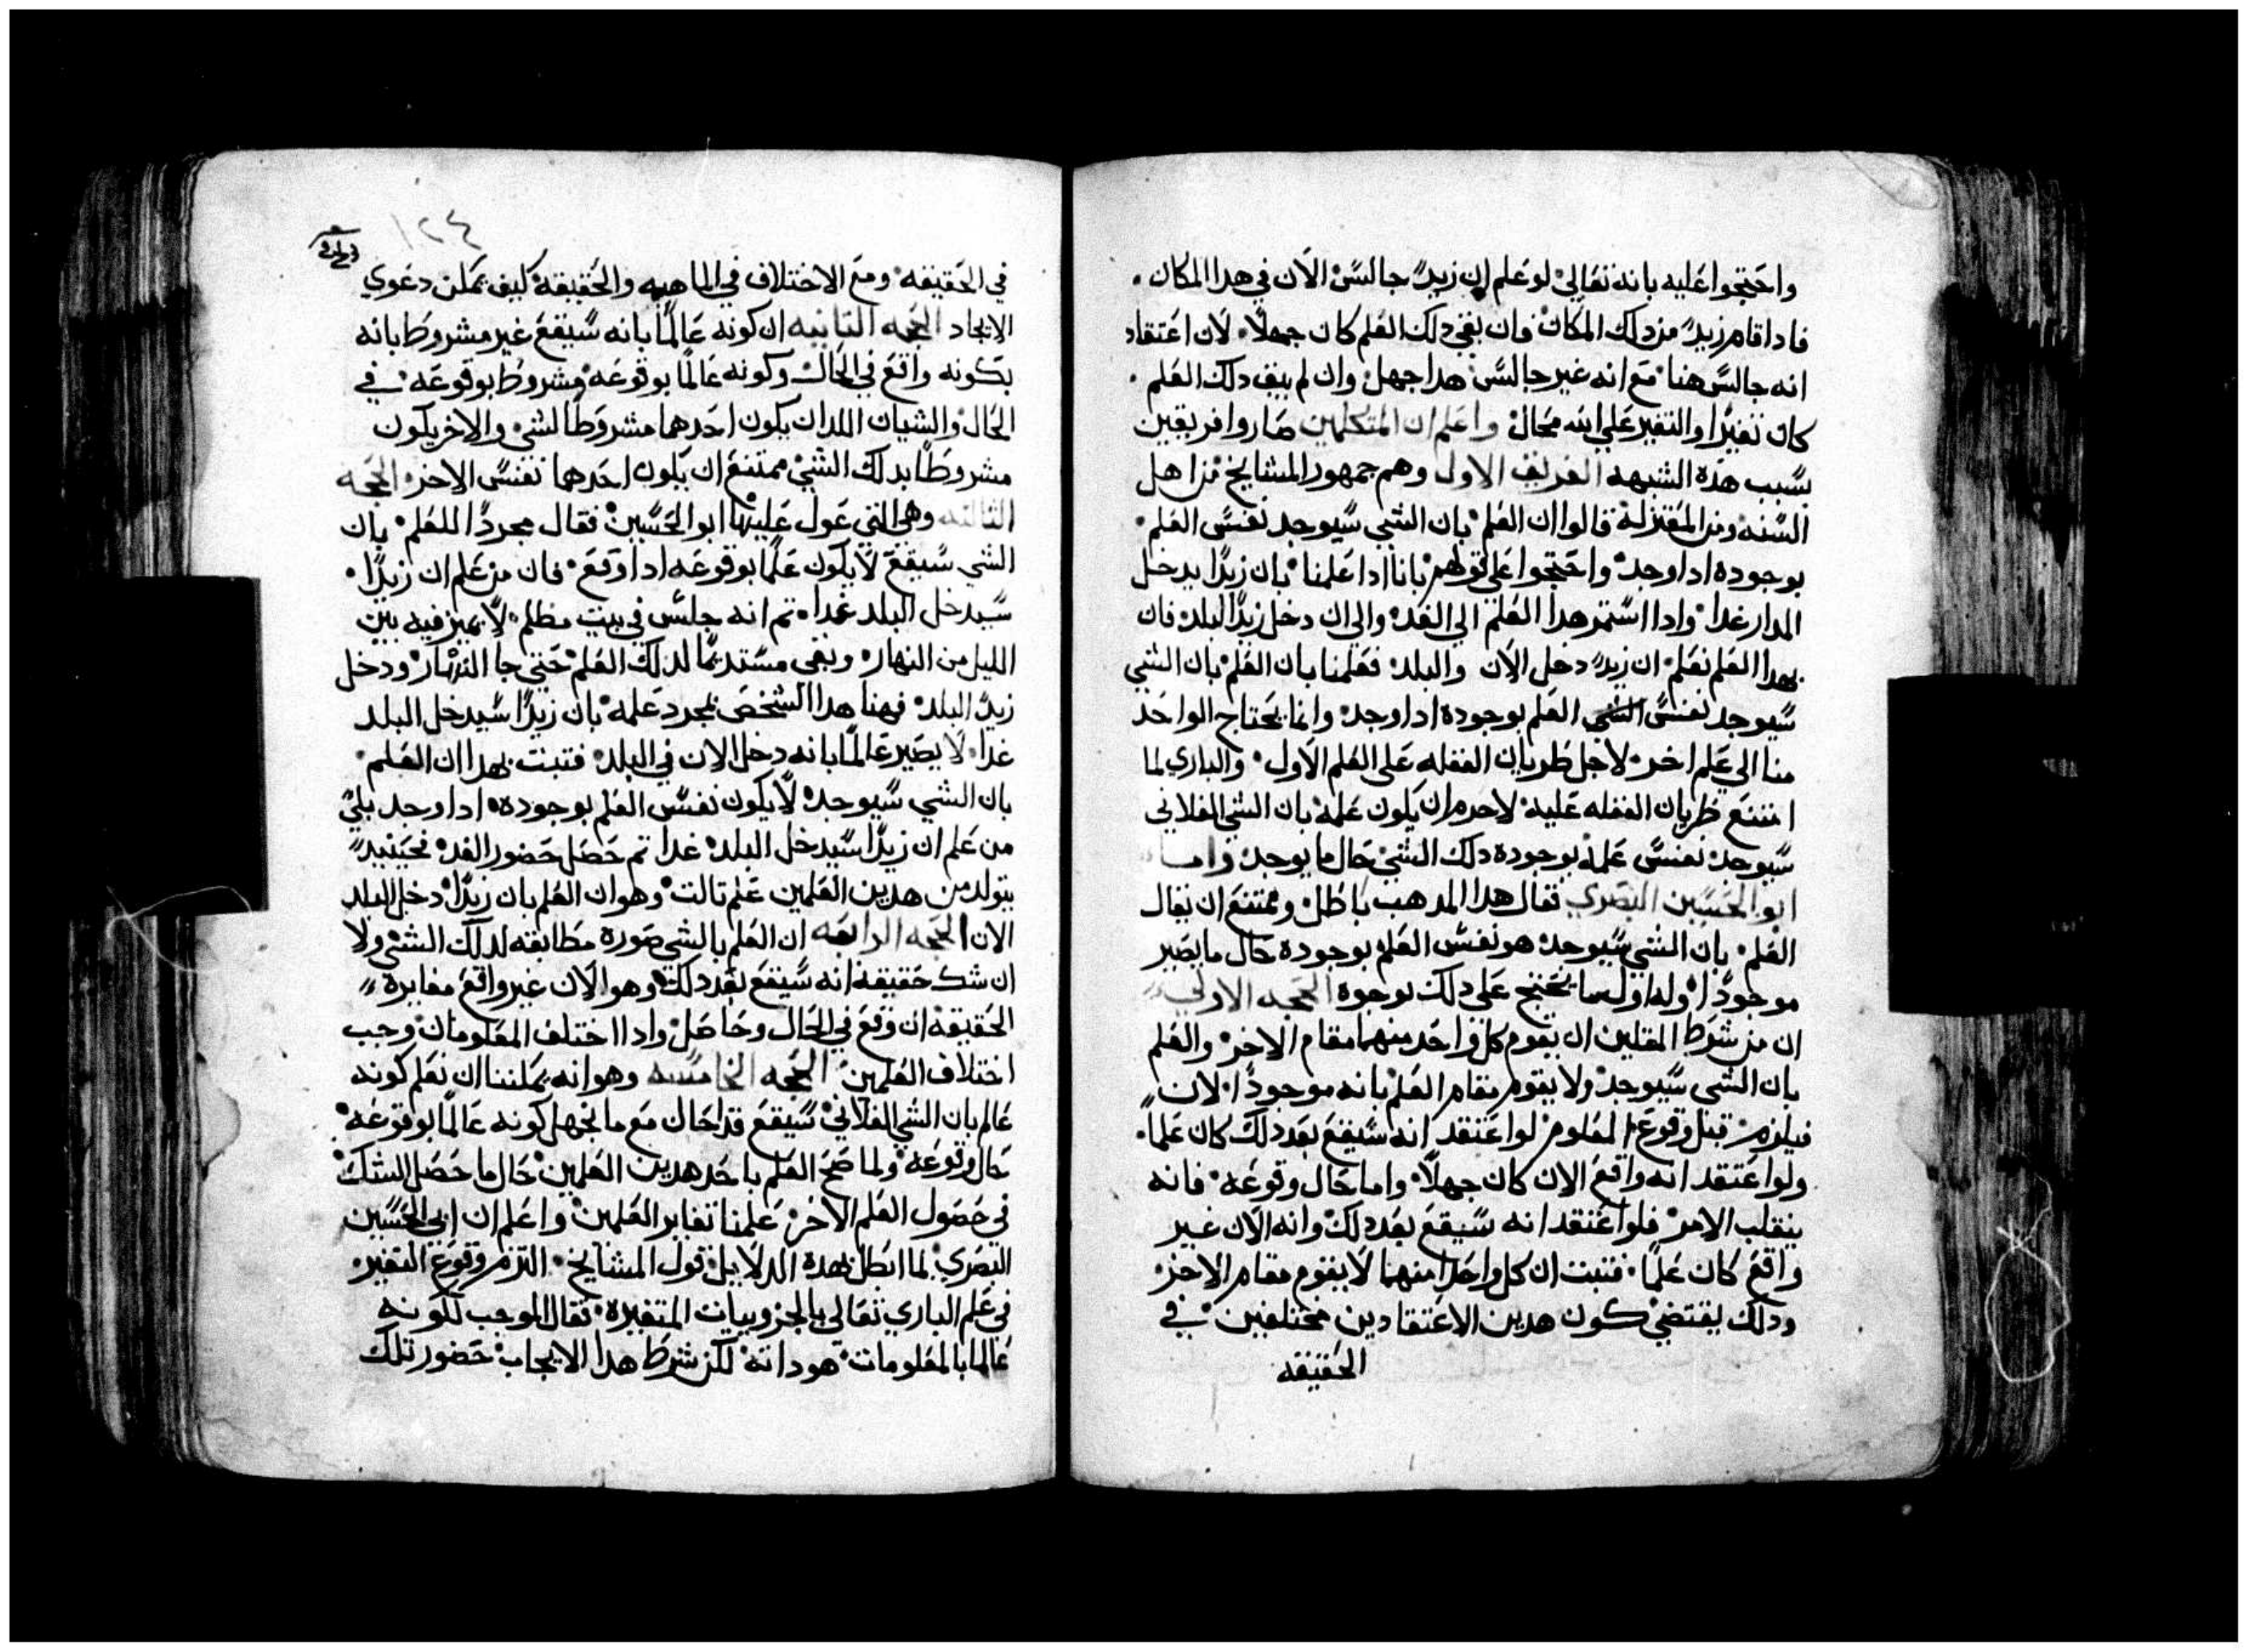 واحتجوا عليه بانه تعالى لو علم ان زيدٌ جالس الآن في هدا المكان.
فادا قام زيدٌ من دلك المكان فان بقي دلك العلم كان جهلاً. لان اعتقاد
انه جالس هنا مع انه غير جالس هدا جهل وان لم يبق دلك العلم.
كان تغيرًا والتغير على الله محال واعلم ان المتكلمين صاروا فريقين
بسبب هده الشبهه الفريق الاول وهم جمهور المشايخ من اهل
السنه ومن المعتزلة قالوا ان العلم بان الشي سيوجد نفس العلم
بوجوده ادا وجد واحتجوا على قولهم بانا ادا علمنا بان زيدًا يدخل
الدار غدا وادا استمر هدا العلم الي الغد والي ان دخل زيدًا البلد فان
بهدا العلم نعلم ان زيدٌ دخل الآن والبلد فعلمنا بان العلم بان الشي
سيوجد نفس الشي العلم بوجوده ادا وجد وانما يحتاج الواحد
منا الي علم اخر لاجل طريان الغفله على العلم الاول والباري لما
امتنع طريان الغفله عليه لاجرم ان يكون علمه بان الشي الفلاني
سيوجد نفس علمه بوجوده دلك الشي حال ما يوجد واما
ابو الحسين البصري فقال هدا المدهب باطل وممتنع ان يقال
العلم بان الشي سيوجد هو نفس العلم بوجوده حال ما يصير
موجودًا وله اول ما يحتج على دلك بوجوه الحجه الاولي
ان من شرط المثلين ان يقوم كل واحد منهما مقام الاخر والعلم
بان الشي سيوجد ولا يقوم مقام العلم بانه موجودًا لان
فيلزم قبل وقوع المعلوم لو اعتقد انه سيقع بعد دلك كان علمًا.
ولو اعتقد انه واقع الان كان جهلاً واما حال وقوعه فانه
ينقلب الامر فلو اعتقد انه سيقع بعد دلك وانه الآن غير
واقع كان علمًا. فتبت ان كل واحدًا منهما لا يقوم مقام الاخر
ودلك يقتضي كون هدين الاعتقادين مختلفين في
الحقيقه
١٢٤
في الحقيقه ومع الاختلاف في الماهيه والحقيقة كيف يمكن دعوي
الاتحاد الحجه التانيه ان كونه عالمًا بانه سيقع غير مشروط بانه
بكونه واقع في الحال وكونه عالمًا بوقوعه مشروط بوقوعه في
الحال والشيان اللدان يكون احدهما مشروطًا لشي والاخر يكون
مشروطًا بدلك الشي ممتنع ان يكون احدهما نفس الاخر الحجه
التالته وهي التي عول عليها ابو الحسين فقال مجردًا للعلم بان
الشي سيقع لا يكون علمًا بوقوعه ادا وقع فان من علم ان زيدًا
سيدخل البلد غدا. تم انه جلس في بيت مظلم لا يميز فيه بين
الليل من النهار وبقي مستديمًا لدلك العلم حتى جا النهار ودخل
زيدٌ البلد فهنا هدا الشخص بمجرد علمه بان زيدًا سيدخل البلد
غدا لا يصير عالمًا بانه دخل الان في البلد فتبت بهدا ان العلم
بان الشي سيوجد لا يكون نفس العلم بوجوده ادا وجد بلي
من علم ان زيدًا سيدخل البلد غدا تم حصل حضور الغد فحينيدٍ
يتولد من هدين العلمين علم تالت وهو ان العلم بان زيدًا دخل البلد
الان الحجه الرابعه ان العلم بالشي صورة مطابقه لدلك الشي ولا
ان شك حقيقة انه سيقع بعد دلك وهو الآن غير واقع مغايرة
الحقيقة ان وقع في الحال وحاصل وادا اختلف المعلومان وجب
اختلاف العلمين الحجه الخامسه وهو انه يمكننا ان نعلم كونه
عالم بان الشي الفلاني سيقع قد احال مع ما نجهل كونه عالمًا بوقوعه
حال وقوعه ولما صح العلم باحد هدين العلمين حال ما حصل الشك
في حصول العلم الاخر علمنا تغاير العلمين واعلم ان ابي الحسين
البصري لما ابطل بهده الدلايل قول المشايخ. التزم وقوع التغير
في علم الباري تعالى بالجزوييات المتغيرة فقال الموجب لكونه
عالما بالمعلومات هو داته لكن شرط هدا الايجاب حضور تلك